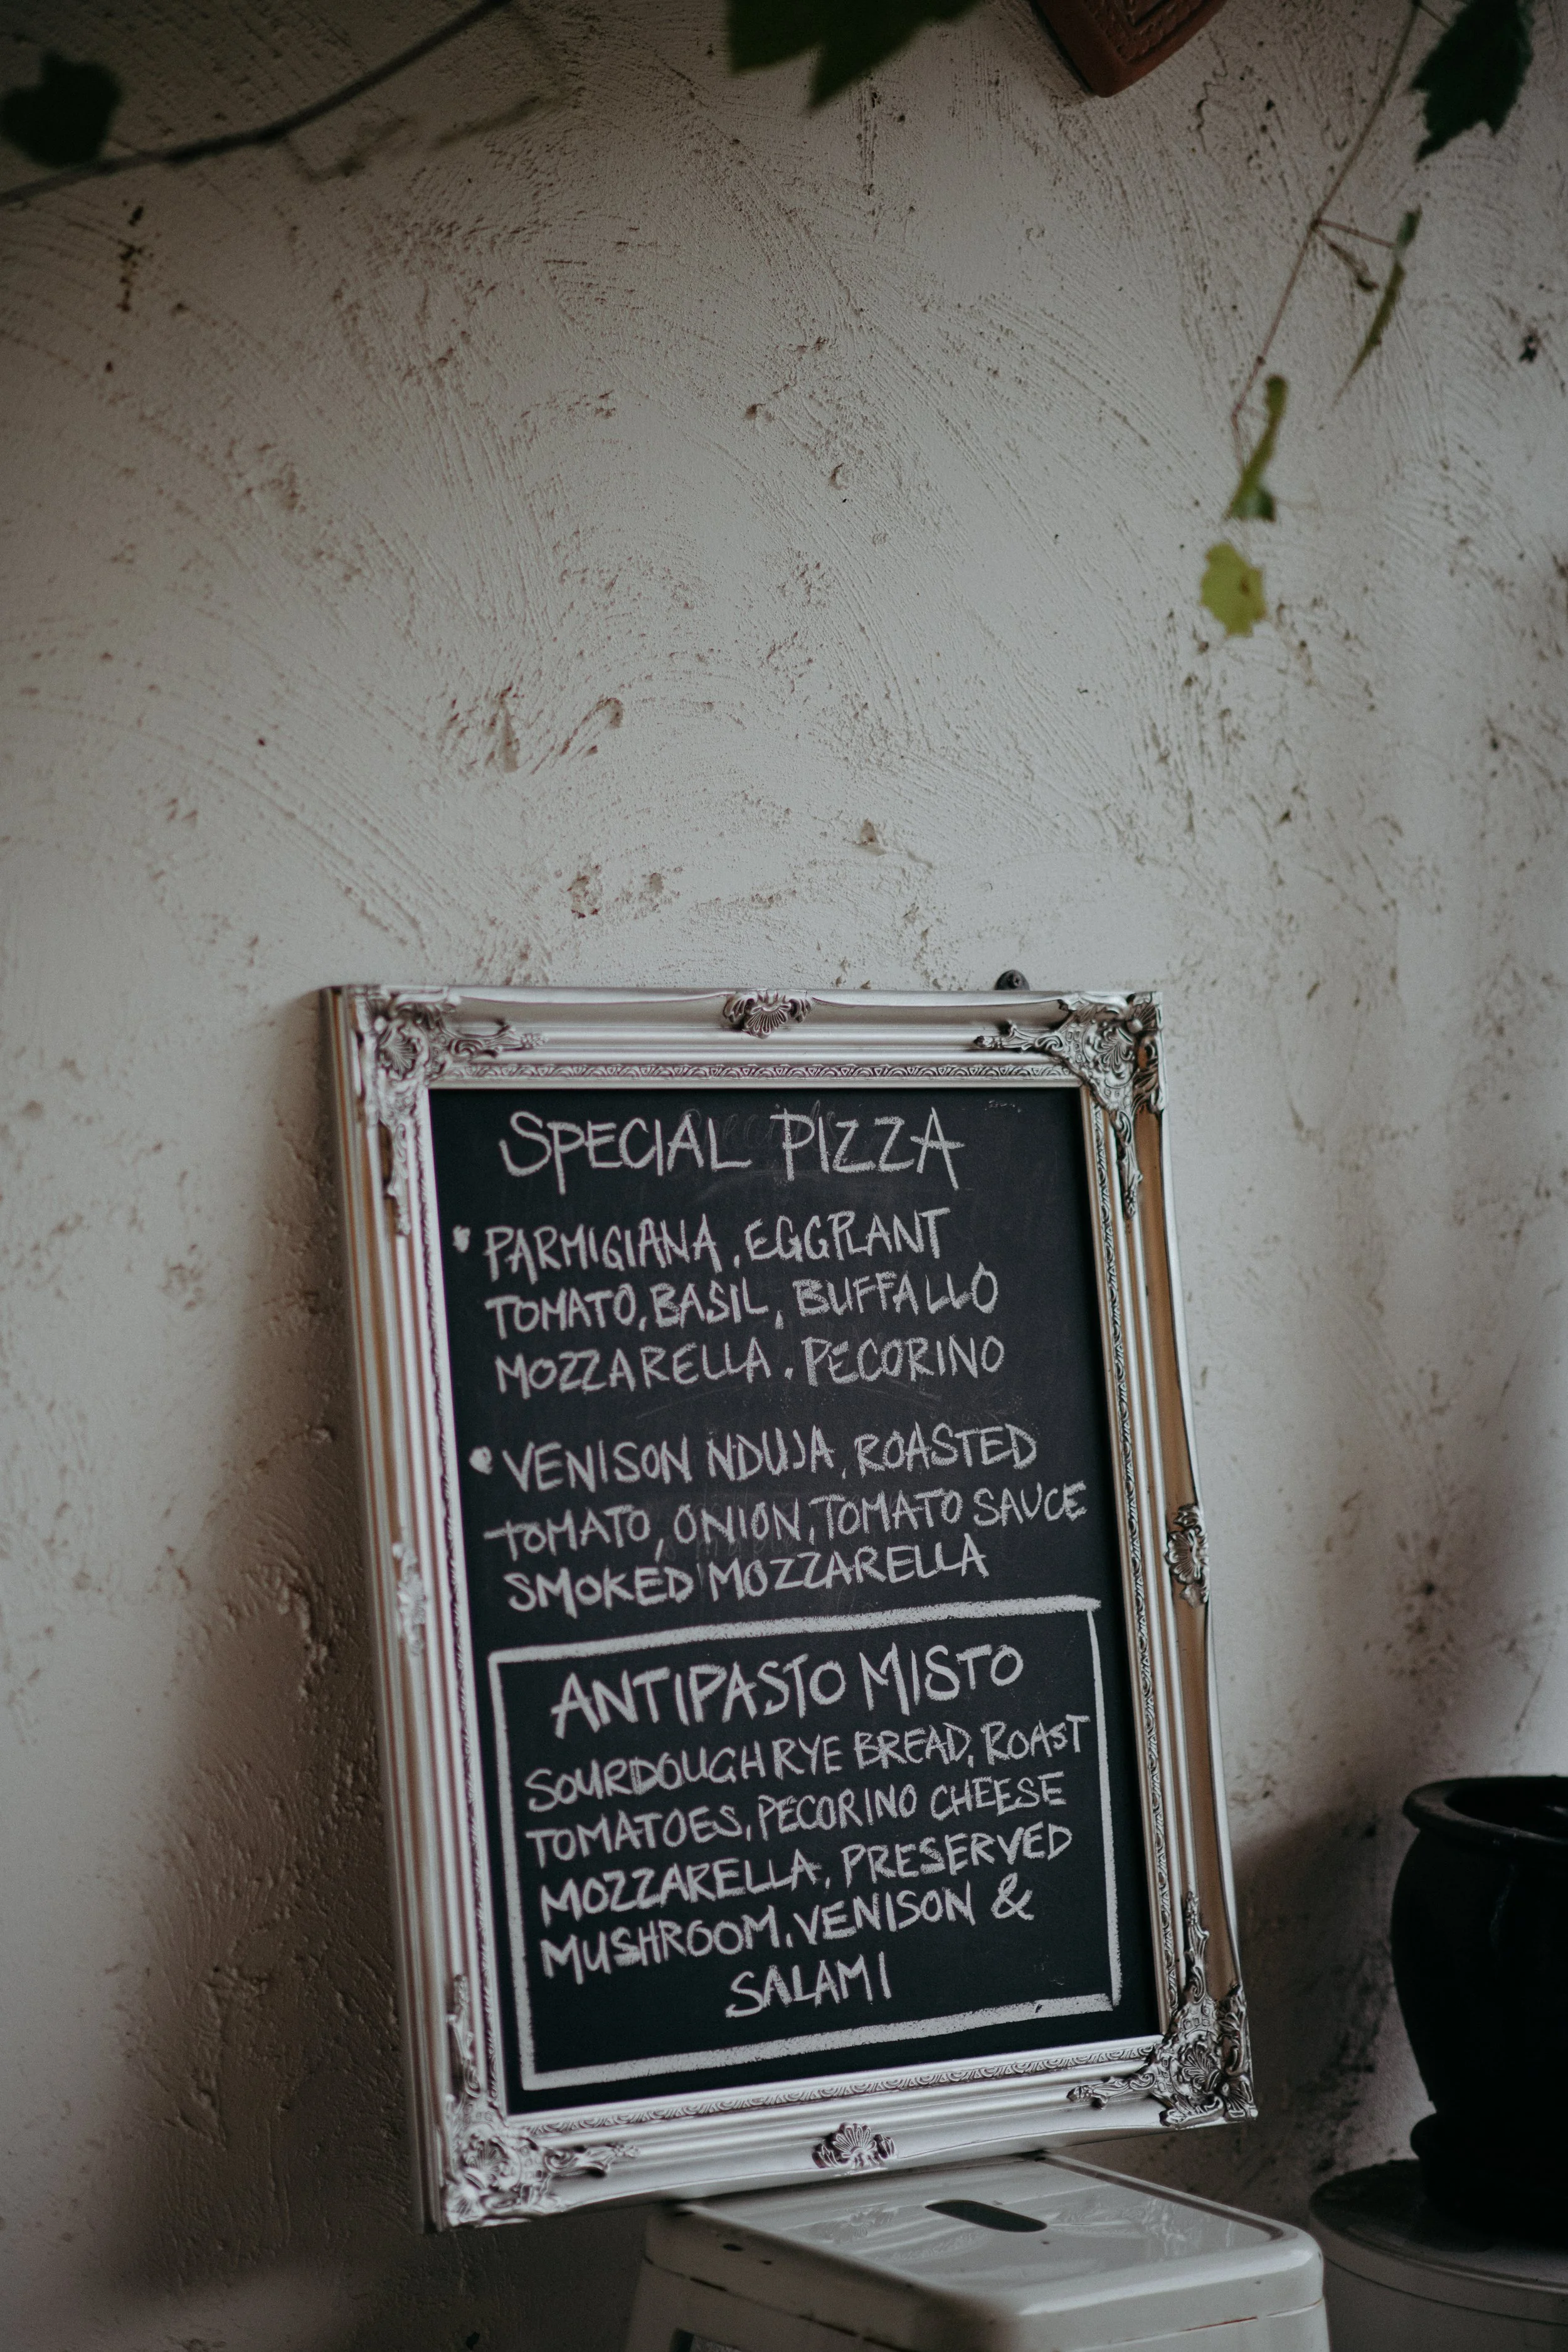 SPECIAL PIZZA
• PARMIGIANA, EGGPLANT
TOMATO, BASIL, BUFFALLO
MOZZARELLA, PECORINO
• VENISON NDUJA, ROASTED
TOMATO, ONION, TOMATO SAUCE
SMOKED MOZZARELLA
ANTIPASTO MISTO
SOURDOUGH RYE BREAD, ROAST
TOMATOES, PECORINO CHEESE
MOZZARELLA, PRESERVED
MUSHROOM, VENISON &
SALAMI